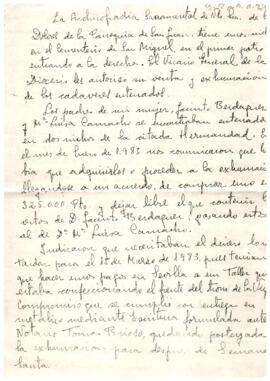 La Archicofradia Sacramental de Ntr. Sra. de l
Dolores de la Parroquia de San Juan, tiene unos nich
en el Cementerio de San Miguel en el primer patio
entrando a la derecha. El Vicario General de la
Diocesis les autoriso su venta y exhumacion
de los cadaveres enterrados.
Los padre de mi mujer, Jacinto Berdaguer
y Mª Luisa Camacho se encontraban enterrados
en dos nichos de la sitada Hermandad. E
el mes de Enero de 1.983 nos comunicaron que ha
bia que adquirirlos o proceder a la exhumaci
llegandose a un acuerdo, de comprar uno e
325.000 Pta. y dejar libre el que contenia
restos de D. Jacinto Berdaguer, pasando estos
al de Dª Mª Luisa Camacho.
Indicaron que necesitaban el dinero lo
tardar para el 1º de Marzo de 1983, pues tenian
que hacer unos pagos en Sevilla a un Taller qu
estaba confeccionando el frente del Trono de la Virg
Compromiso que se cumplió con entrega en
metalico mediante Escritura formulada ante
Notario Tomas Brioso, quedando postergada
la exhumacion para despues de Semana
Santa.